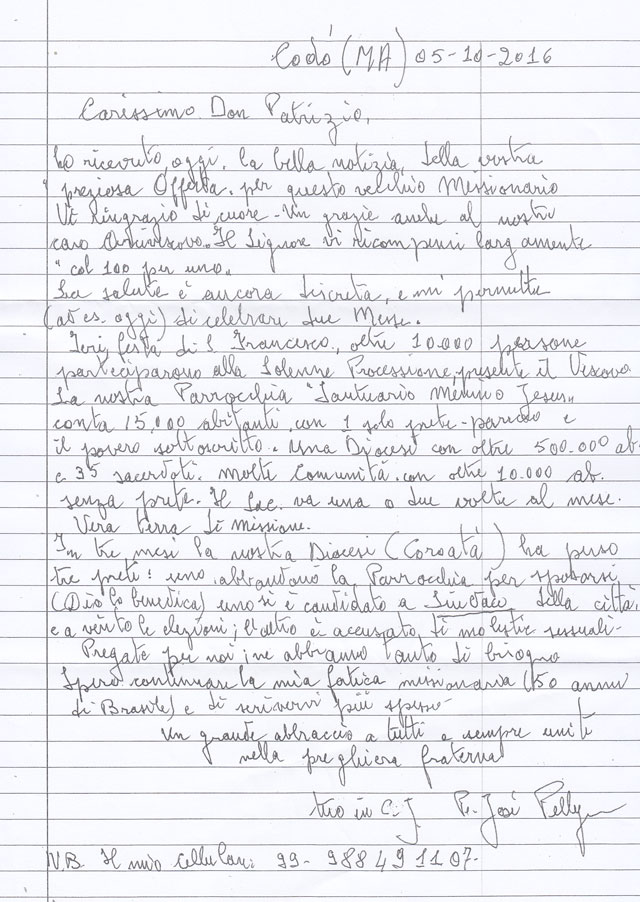 Codó (MA) 05-10-2016
Carissimo Don Patrizio,
Ho ricevuto, oggi, la bella notizia della vostra
"preziosa Offerta" per questo vecchio Missionario
Vi ringrazio di cuore - Un grazie anche al nostro
caro Arcivescovo. Il Signore vi ricompensi largamente
"col 100 per uno"
La salute è ancora discreta, e mi permette
(ad es. oggi) di celebrare due Messe.
Ieri, festa di S. Francesco, oltre 10.000 persone
parteciparono alla Solenne Processione, presente il Vescovo
La nostra Parrocchia "Santuario Menino Jesus"
conta 15.000 abitanti con 1 solo prete-parroco e
il povero sottoscritto. Una Diocesi con oltre 500.000 ab.
e 35 sacerdoti. Molte Comunità con oltre 10.000 ab.
senza prete. Il Sac. va una o due volte al mese.
Vera terra di missione.
In tre mesi la nostra Diocesi (Coroatá) ha perso
tre preti: uno abbandonò la Parrocchia per sposarsi
(Dio lo benedica) uno si è candidato a Sindaco della città,
e a vinto le elezioni; l'altro è accusato di molestie sessuali-
Pregate per noi, ne abbiamo tanto di bisogno
Spero continuare la mia fatica missionaria (50 anni
di Brasile) e di scrivervi più spesso-
Un grande abbraccio a tutti e sempre uniti
nella preghiera fraterna
tuo in C. J P. José
N.B. Il mio cellulare: 99-988491107-